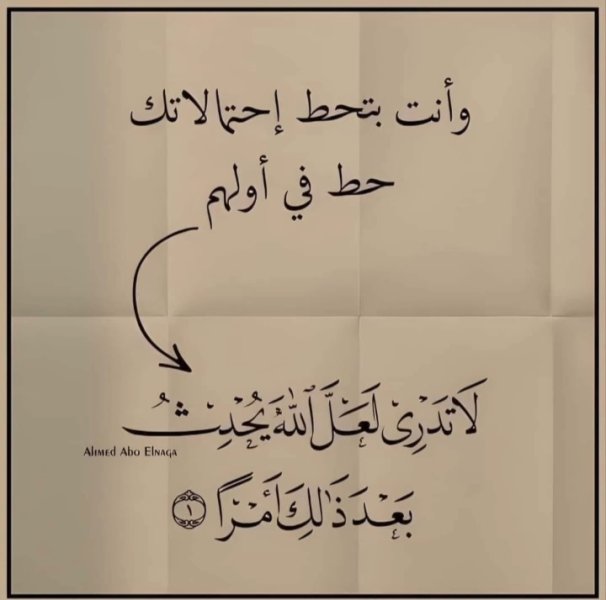 وأنت بتحط إحتمالاتك
حط في أولهم
لَا تَدۡرِى لَعَلَّ ٱللَّهَ يُحۡدِثُ
Ahmed Abo Elnaga
بَعۡدَ ذَٰلِكَ أَمۡرًا ١